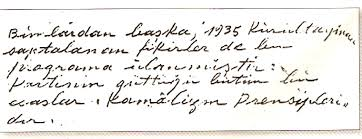 Bunlardan başka, 1935 Kurultayında
saptalanan fikirler de bu
programa alınmıştır.
Partinin güttüğü bütün bu
esaslar, Kamâlizm Prensipleri
dir.